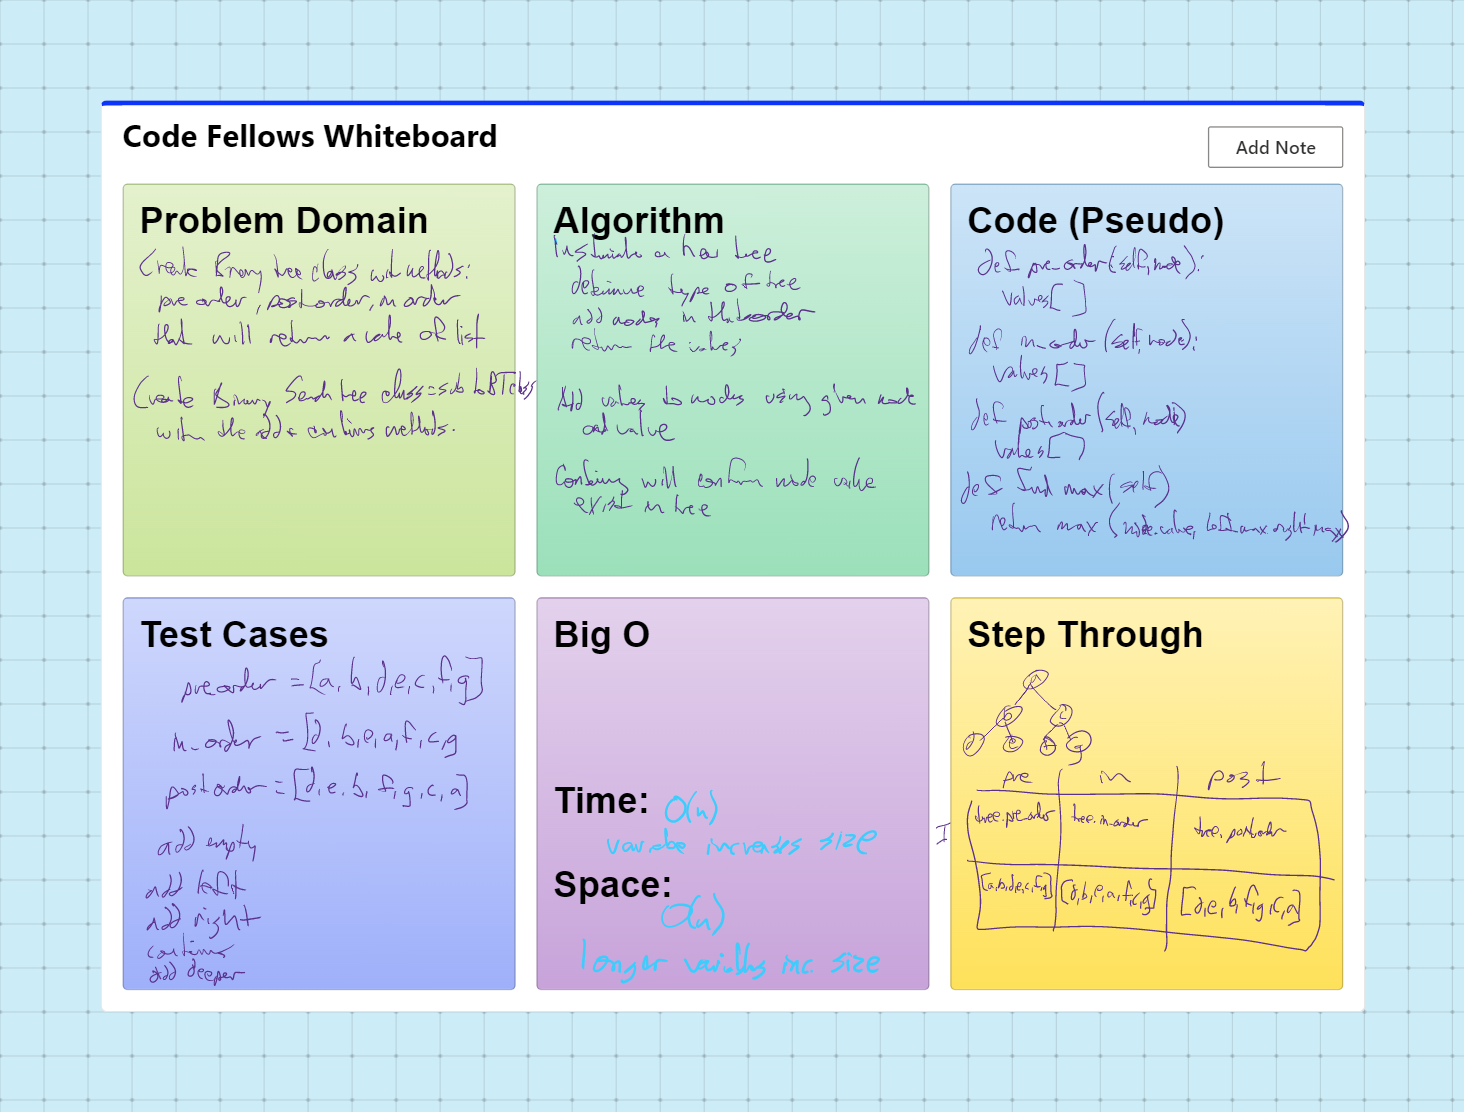 Code Fellows Whiteboard
Add Note
Problem Domain
Create Binary tree class with methods:
pre order, post order, in order
that will return a value or list
Create Binary Search tree class = sub to BT class
with the add + contains methods.
Algorithm
Instantiate a new tree
determine type of tree
add nodes in that order
return the values
Add values to nodes using given node
and value
will confirm node value
exist in tree
Code (Pseudo)
def pre_order(self, node):
values[ ]
def in_order(self, node):
values[ ]
def post_order(self, node)
values[ ]
def find max(self)
return max (node.value, left_max. right_max)
Test Cases
pre_order = [a, b, d, e, c, f, g]
in_order = [d, b, e, a, f, c, g
post order = [d, e, b, f, g, c, a]
add empty
add left
add right
contains
add deeper
Big O
Time: O(n)
increases size
Space:
O(n)
longer inc. size
Step Through
a
b c
d e f g
pre in post
I tree.pre order tree.in_order tree.postorder
[a,b,d,e,c,f,g] [d,b,e,a,f,c,g] [d,e,b,f,g,c,a]